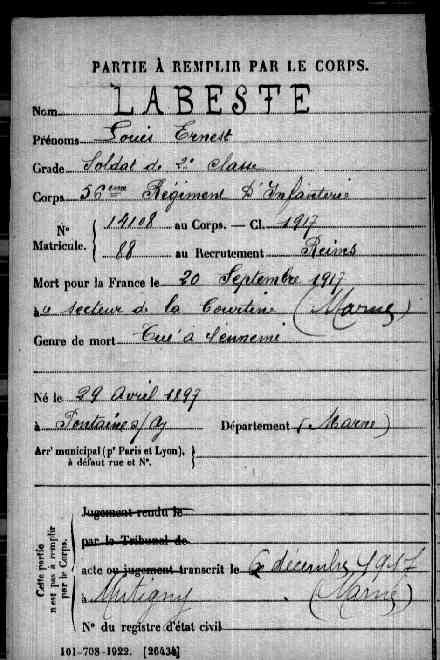 PARTIE À REMPLIR PAR LE CORPS.
Nom LABESTE
Prénoms Louis Ernest
Grade Soldat de 2e classe
Corps 56eme Régiment D'Infanterie
N° Matricule. { 14108 au Corps. — Cl. 1917
88 au Recrutement Reims
Mort pour la France le 20 Septembre 1917
à secteur de la Courtine (Marne)
Genre de mort Tué à l'ennemi
Né le 29 Avril 1897
à Fontaine s/ Ay Département (Marne)
Arrt municipal (pr Paris et Lyon),
à défaut rue et N°.
Cette partie n'est pas à remplir par le Corps.
Jugement rendu le
par le Tribunal de
acte ou jugement transcrit le 6 décembre 1917
à Mutigny (Marne)
N° du registre d'état civil
101-708-1922. [26434]